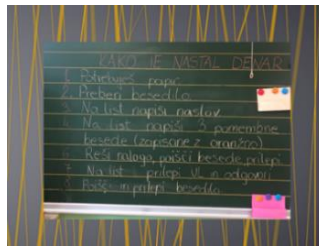 KAKO JE NASTAL DENAR
1. Potrebuješ papir.
2. Preberi besedilo.
3. Na list napiši naslov.
4. Na list napiši 3 pomembne
besede (zapisane z oranžno)
6. Reši nalogo, poišči besede, prilepi.
7. Na list prilepi UL in odgovori
8. Poišči in prilepi besedilo.